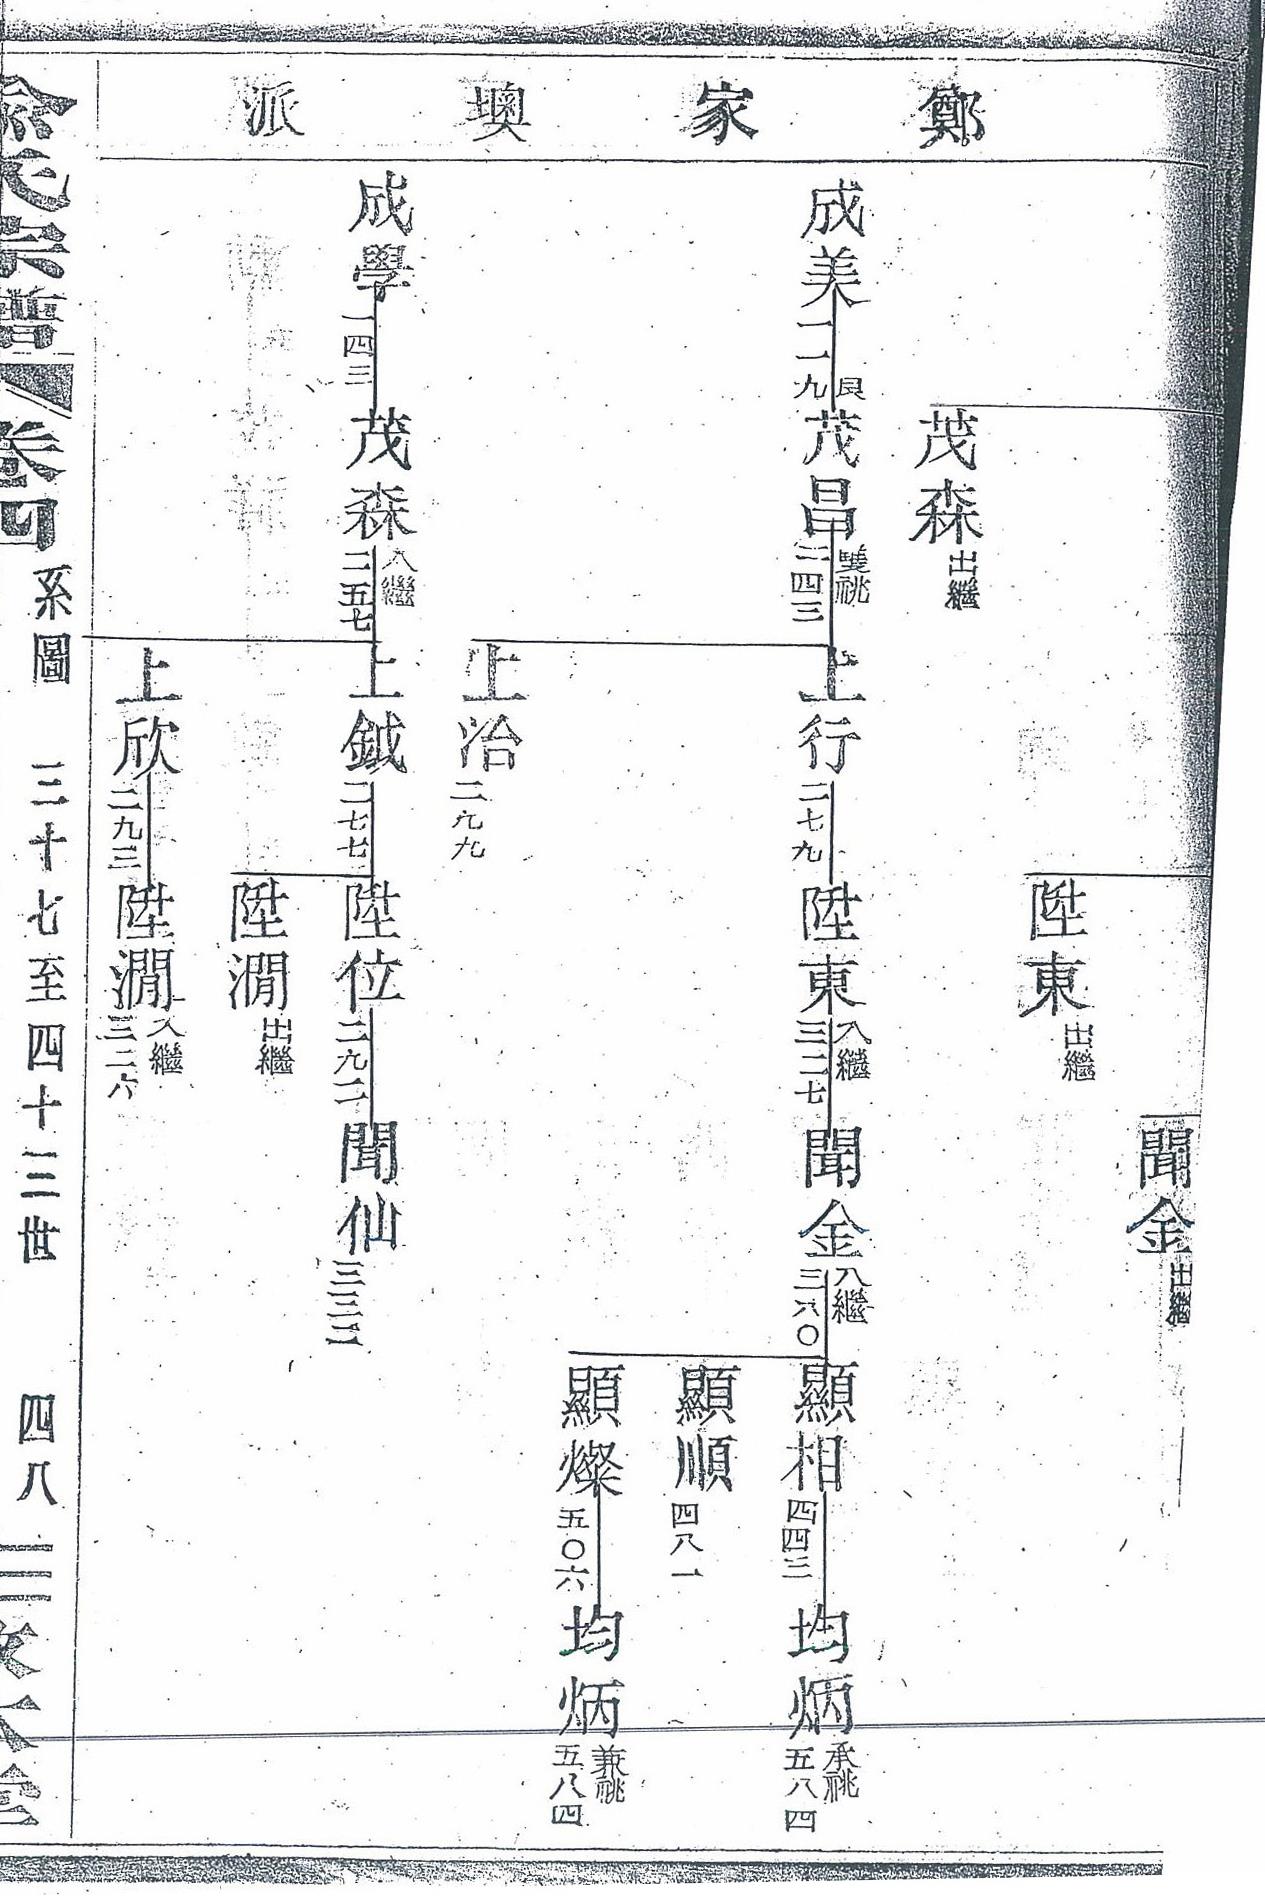 鄭家墺派
茂森 出繼
陞東 出繼
聞金 出繼
成美 一一九
艮
茂昌 二四三 雙祧
上行 二七九
陞東 三二七 入繼
聞金 三六〇 入繼
顯相 四四三
均炳 五八四 承祧
顯順 四八一
顯燦 五〇六
均炳 五八四 兼祧
上治 二九九
成學 一四三
茂森 二五七 入繼
上鉞 二七七
陞位 二九二
聞仙 三三二
陞澗 出繼
上欣 二九三
陞澗 三二六 入繼
俞氏宗譜 卷四 系圖 三十七至四十三世 四八